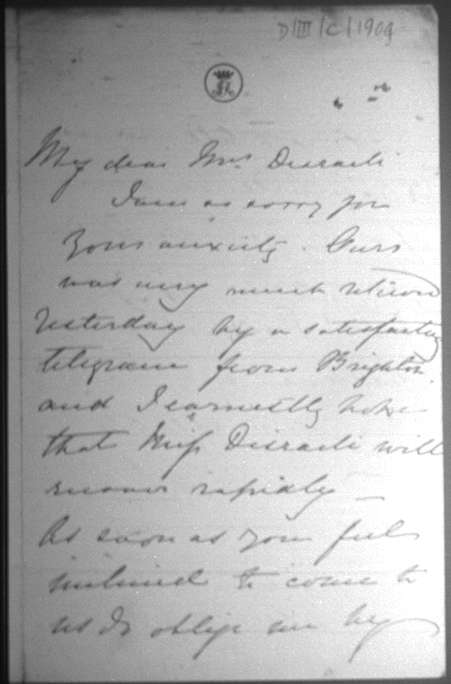 D/III/C/1909
My dear Mrs Disraeli
I am so sorry for
your anxiety. Ours
was very much relieved
Yesterday by a satisfactory
telegram from Brighton
and I earnestly hope
that Miss Disraeli will
recover rapidly _
As soon as you feel
inclined to come to
us do oblige me by